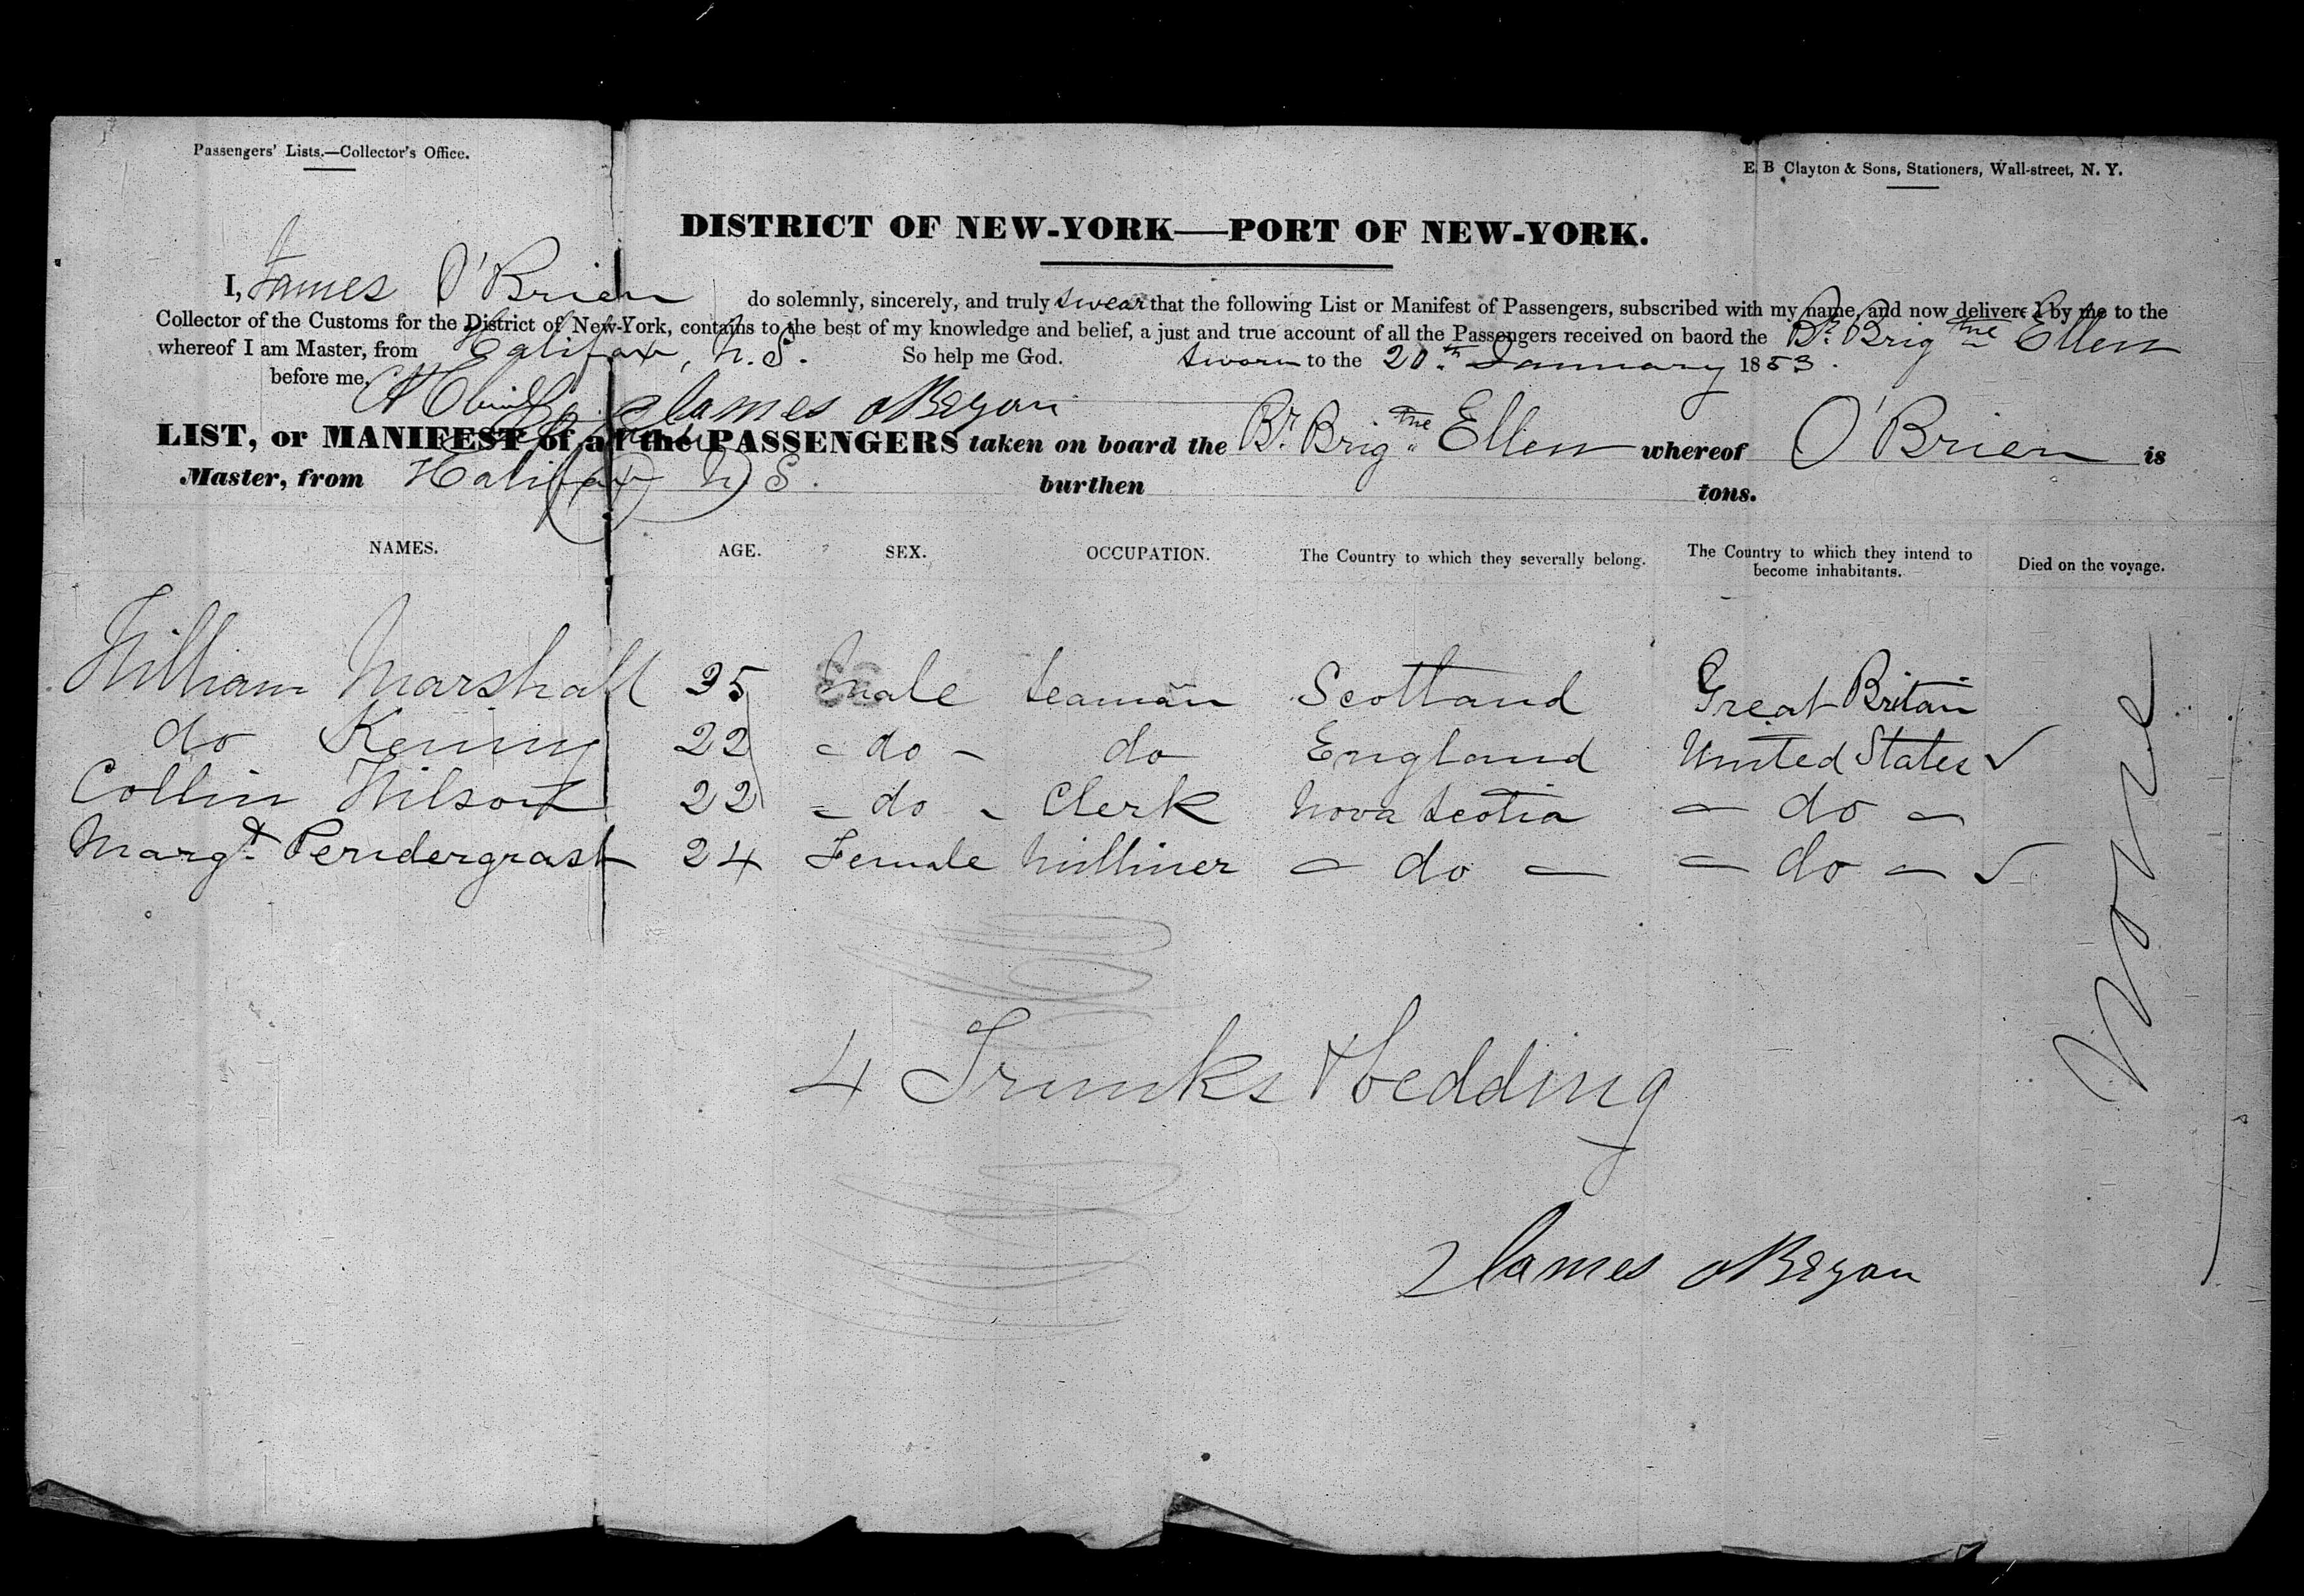 Passengers' Lists.—Collector's Office.
E. B Clayton & Sons, Stationers, Wall-street, N. Y.
DISTRICT OF NEW-YORK—PORT OF NEW-YORK.
I, James O'Brien do solemnly, sincerely, and truly swear that the following List or Manifest of Passengers, subscribed with my name, and now delivered by me to the
Collector of the Customs for the District of New-York, contains to the best of my knowledge and belief, a just and true account of all the Passengers received on baord the Br. Brig tne Ellen
whereof I am Master, from Halifax, N.S. So help me God. Sworn to the 20th January 1853.
before me, James oBryan
LIST, or MANIFEST of all the PASSENGERS taken on board the Br. Brig tne Ellen whereof O'Brien is
Master, from Halifax N S. burthen tons.
NAMES. AGE. SEX. OCCUPATION. The Country to which they severally belong. The Country to which they intend to become inhabitants. Died on the voyage.
William Marshall 35 Male Seaman Scotland Great Britain
do Kenny 22 - do - do England United States ✓
Collin Wilson 22 - do - Clerk Nova Scotia - do -
Margt Pendergrast 24 Female Milliner - do - - do - ✓
None
4 Trunks & bedding
James oBryan